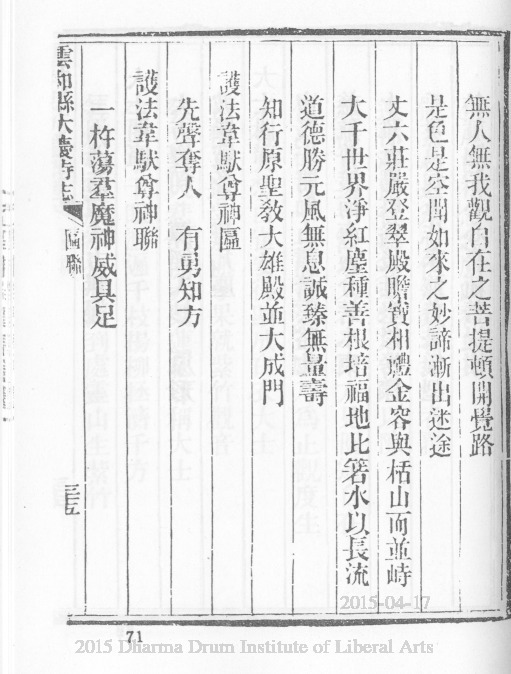 無人無我觀自在之菩提頓開覺路
是色是空聞如來之妙諦漸出迷途
丈六莊嚴登翠殿瞻寶相禮金容與栝山而並峙
大千世界淨紅塵種善根培福地比箬水以長流
道德勝元風無息誠臻無量壽
知行原聖敎大雄殿並大成門
護法韋馱尊神匾
先聲奪人　有勇知方
護法韋馱尊神聯
一杵蕩羣魔神威具足
雲和縣大慶寺志
匾聯
三五
71
2015-04-17
2015 Dharma Drum Institute of Liberal Arts